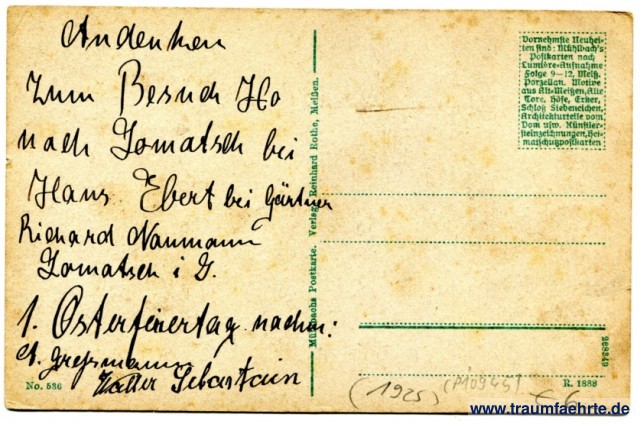 Andenken
Zum Besuch
nach Lomatsch bei
Hans Ebert bei Gärtner
Richard Naumann
Lomatsch i
1. Osterfeiertag nachm:
Sebastain
No. 536
Mühlbachs Postkarte. Verlag: Reinhard Rothe, Meißen.
Vornehmste Neuhei-
ten sind: Mühlbach's
Postkarten nach
Lumière-Aufnahme
Folge 9-12, Meiß.
Porzellan. Motive
aus Alt-Meißen, Alte
Tore, Höfe, Erker,
Schloß Siebeneichen,
Architekturteile vom
Dom usw. Künstler-
steinzeichnungen, Hei-
matschutzpostkarten
R. 1888
(1925)
€ 6
www.traumfaehrte.de